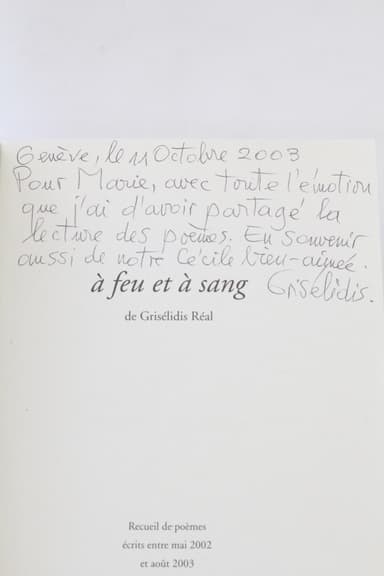 Genève, le 11 Octobre 2003
Pour Marie, avec toute l'émotion
que j'ai d'avoir partagé la
lecture des poèmes. En souvenir
aussi de notre Cécile bien-aimée.
Grisélidis.
à feu et à sang
de Grisélidis Réal
Recueil de poèmes
écrits entre mai 2002
et août 2003